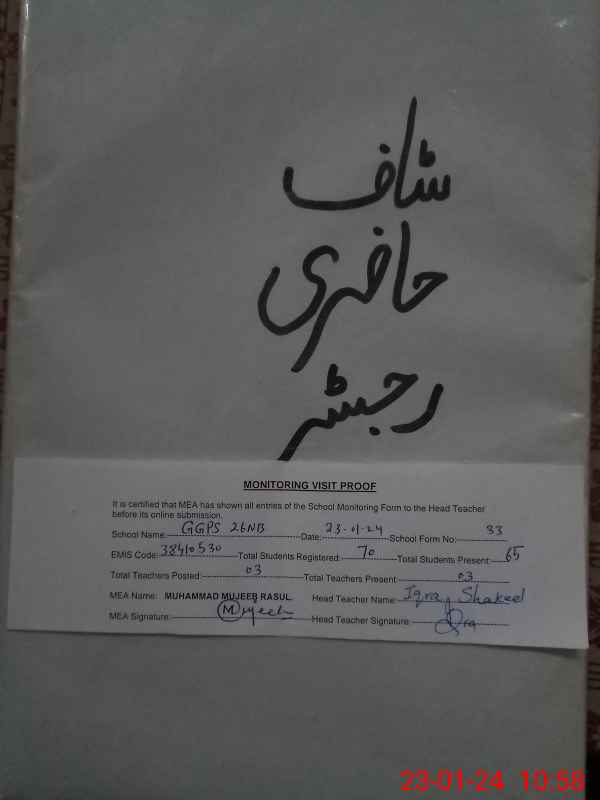 سٹاف
حاضری
رجسٹر
MONITORING VISIT PROOF
It is certified that MEA has shown all entries of the School Monitoring Form to the Head Teacher
before its online submission.
School Name: GGPS 26NB Date: 23-01-24 School Form No: 33
EMIS Code: 38410530 Total Students Registered: 70 Total Students Present: 65
Total Teachers Posted: 03 Total Teachers Present: 03
MEA Name: MUHAMMAD MUJEEB RASUL Head Teacher Name: Iqra Shakeel
MEA Signature: Mujeeb Head Teacher Signature: Iqra
23-01-24 10:58